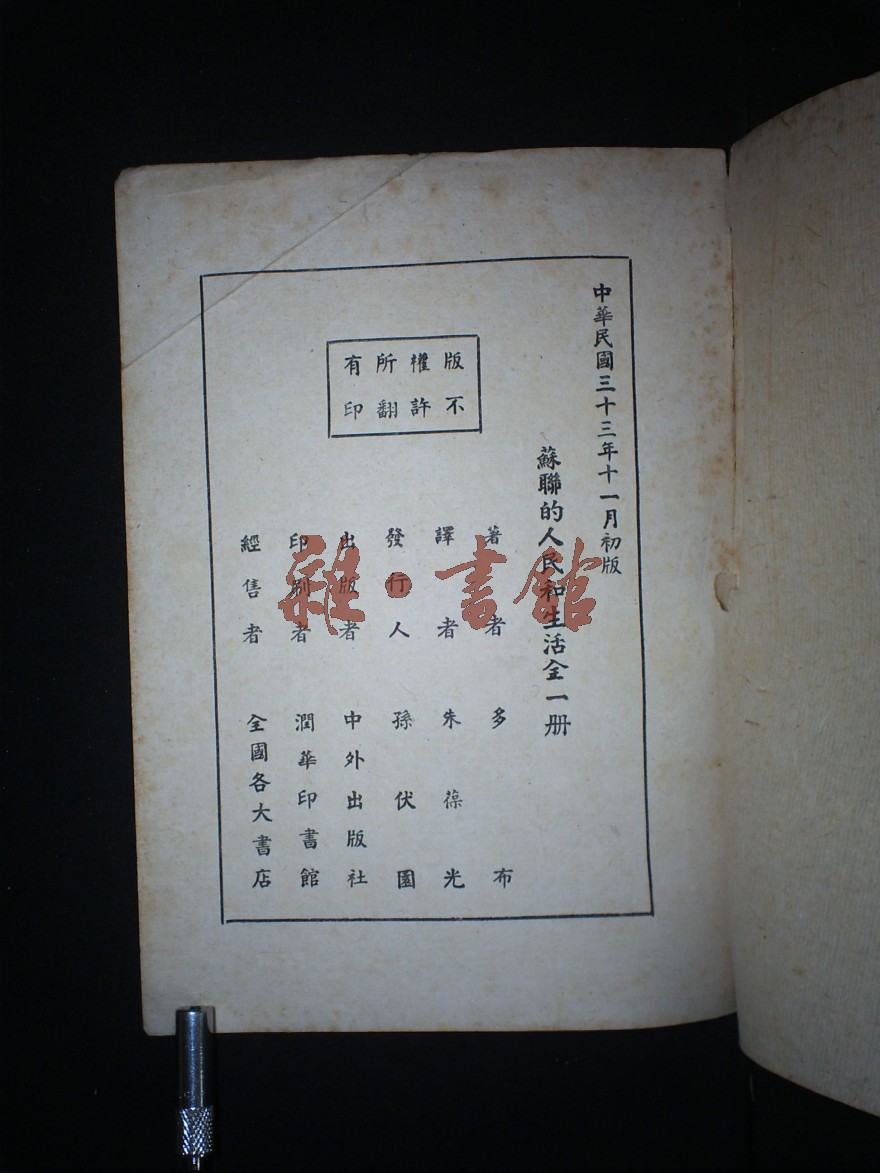 中華民國三十三年十一月初版
蘇聯的人民和生活全一册
版權所有
不許翻印
著者 多布
譯者 朱葆光
發行人 孫伏園
出版者 中外出版社
印刷者 潤華印書館
經售者 全國各大書店
雜·書館